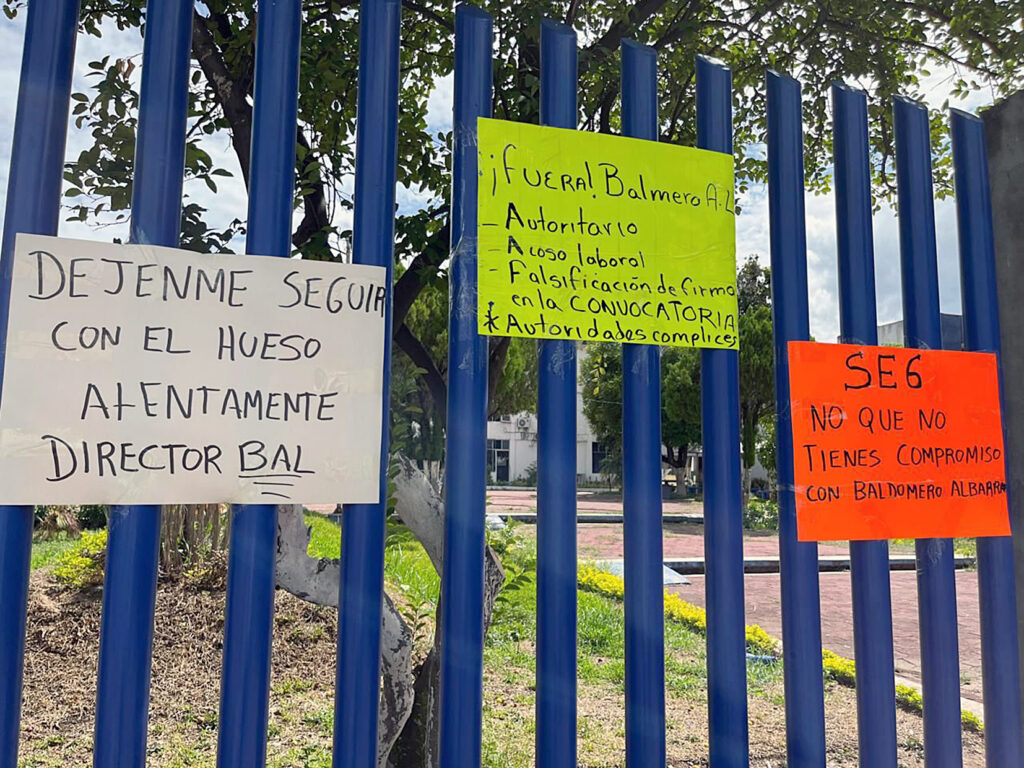 DEJENME SEGUIR
CON EL HUESO
ATENTAMENTE
DIRECTOR BAL
¡¡FUERA! Balmero A.L
- Autoritario
- Acoso laboral
- Falsificación de firma
en la CONVOCATORIA
* Autoridades complices
SE6
NO QUE NO
TIENES COMPROMISO
CON BALDOMERO ALBARR